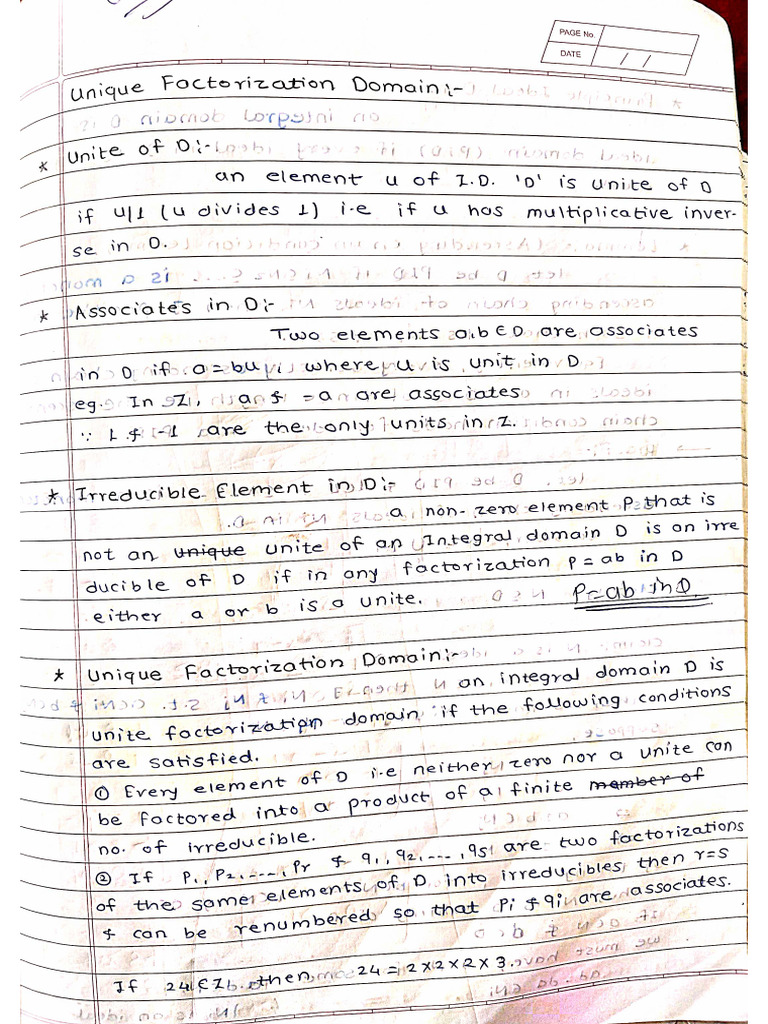 PAGE No.
DATE / /
Unique Factorization Domain:-
* Unite of D:-
an element u of I.D. 'D' is unite of D
if u/1 (u divides 1) i.e if u has multiplicative inver-
se in D.
* Associates in D:-
Two elements a,b ∈ D are associates
in D if a = bu, where u is unit in D
eg. In Z, a & -a are associates
∵ 1 & -1 are the only units in Z.
* Irreducible Element in D:-
a non-zero element P that is
not an unique unite of an Integral domain D is an irre
ducible of D if in any factorization p = ab in D
either a or b is a unite. P=ab in D
* Unique Factorization Domain:-
an integral domain D is
unite factorization domain if the following conditions
are satisfied.
① Every element of D i.e neither zero nor a unite can
be factored into a product of a finite member of
no. of irreducible.
② If P1, P2, ..., Pr & q1, q2, ..., qs are two factorizations
of the same elements of D into irreducibles, then r=s
& can be renumbered so that Pi & qi are associates.
If 24 ∈ Z then 24 = 2 x 2 x 2 x 3.